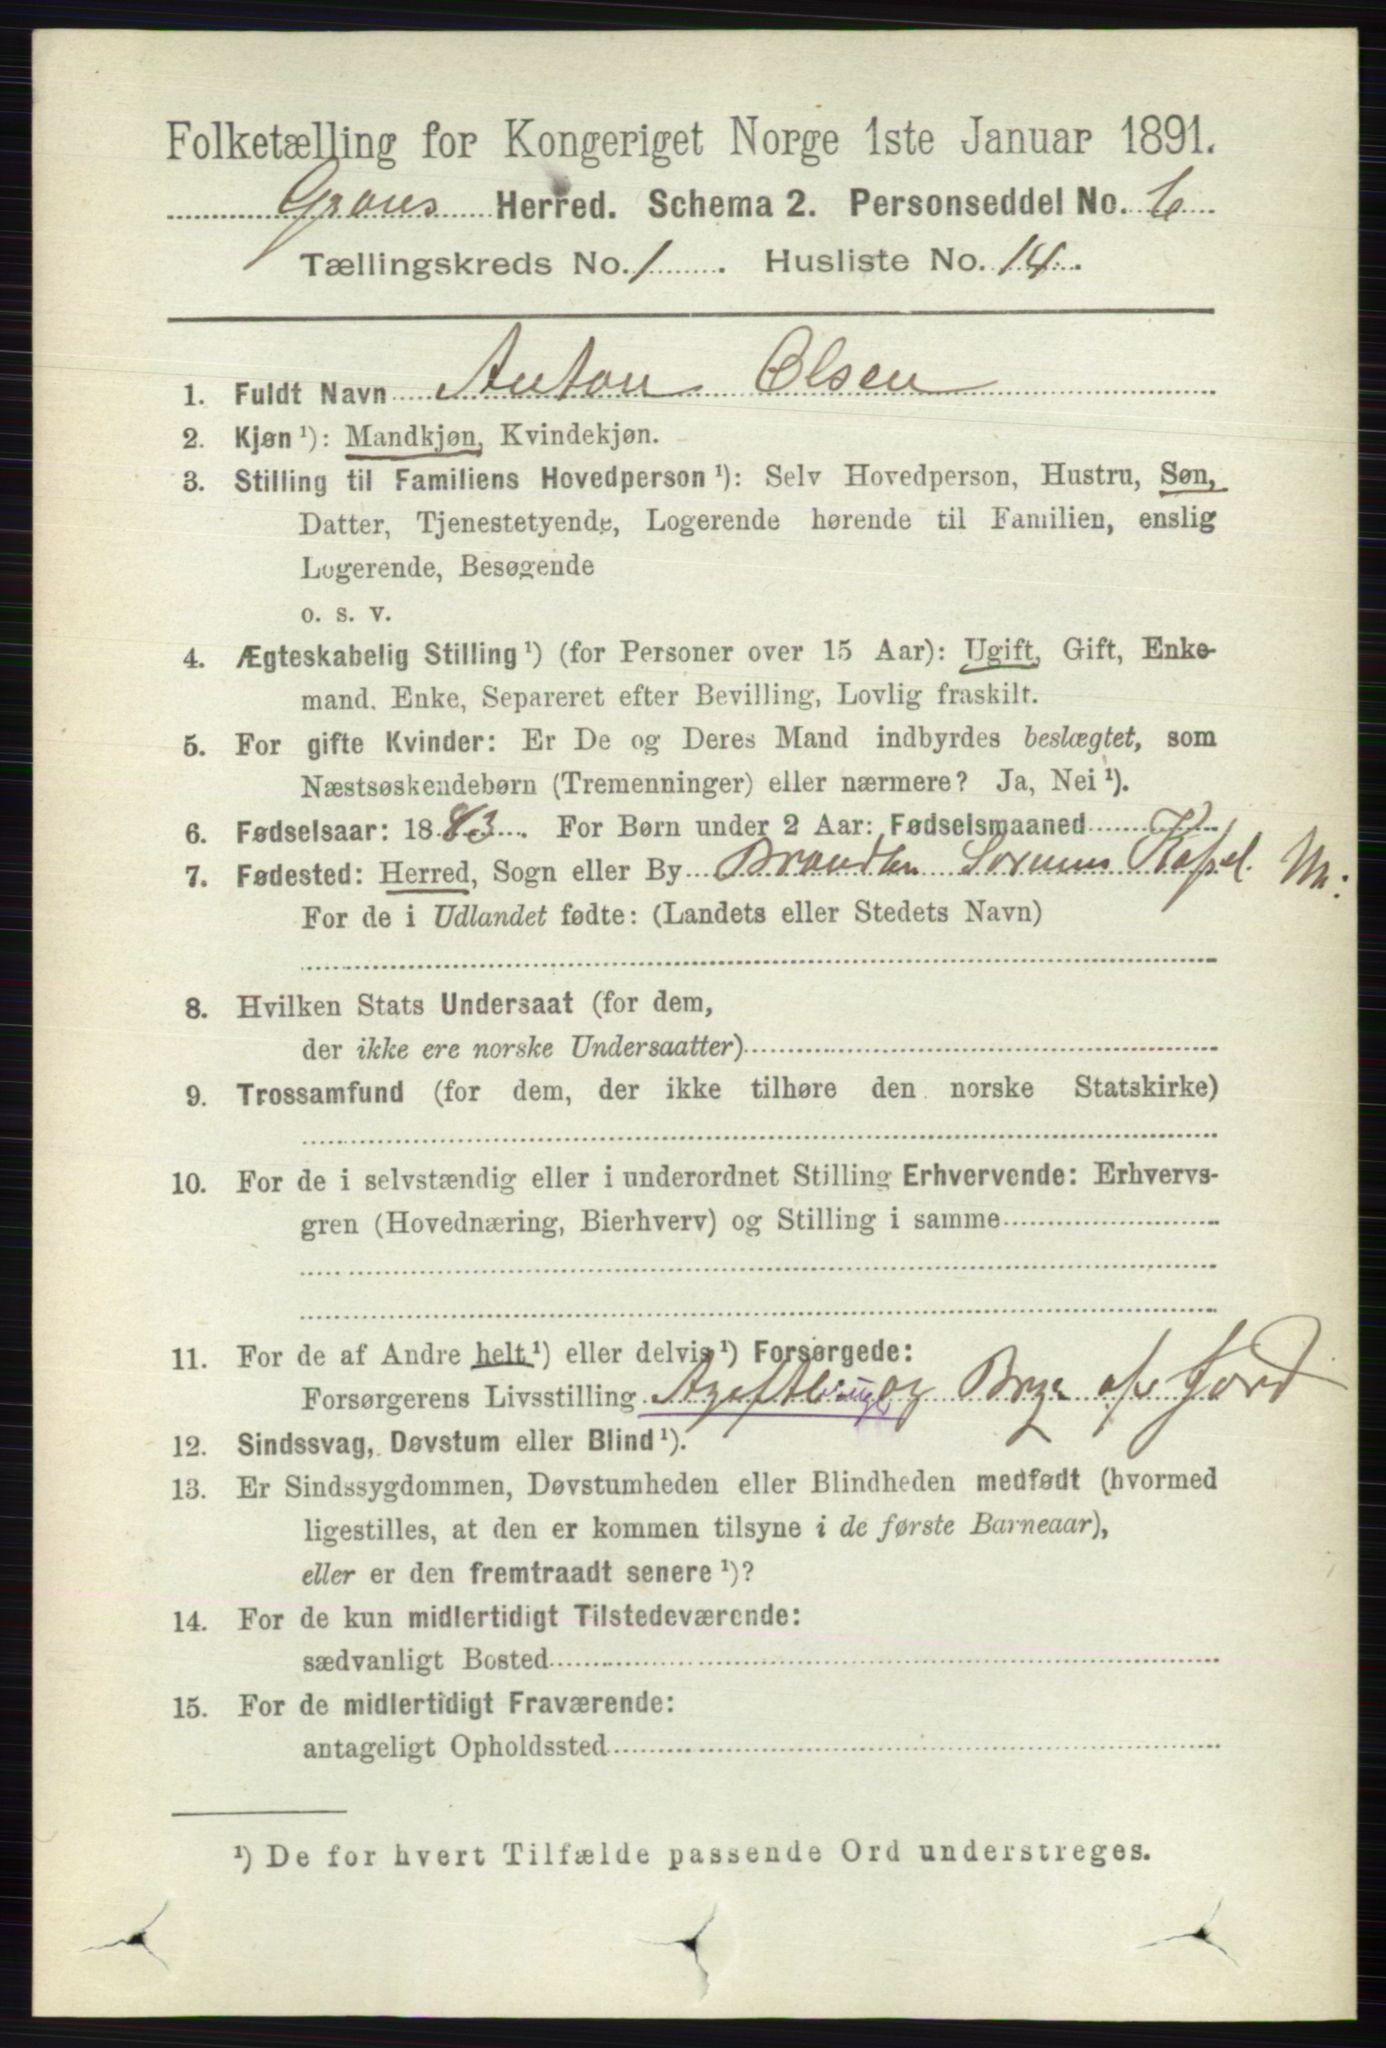 Folketælling for Kongeriget Norge 1ste Januar 1891.
Grans Herred. Schema 2. Personseddel No. 6
Tællingskreds No. 1. Husliste No. 14.
1. Fuldt Navn Anton Olsen
2. Kjøn ¹): Mandkjøn, Kvindekjøn.
3. Stilling til Familiens Hovedperson ¹): Selv Hovedperson, Hustru, Søn,
Datter, Tjenestetyende, Logerende hørende til Familien, enslig
Logerende, Besøgende
o. s. v.
4. Ægteskabelig Stilling ¹) (for Personer over 15 Aar): Ugift, Gift, Enke-
mand, Enke, Separeret efter Bevilling, Lovlig fraskilt.
5. For gifte Kvinder: Er De og Deres Mand indbyrdes beslægtet, som
Næstsøskendebørn (Tremenninger) eller nærmere? Ja, Nei ¹).
6. Fødselsaar: 1883. For Børn under 2 Aar: Fødselsmaaned
7. Fødested: Herred, Sogn eller By Brandbu Kapel.
For de i Udlandet fødte: (Landets eller Stedets Navn)
8. Hvilken Stats Undersaat (for dem,
der ikke ere norske Undersaatter)
9. Trossamfund (for dem, der ikke tilhøre den norske Statskirke)
10. For de i selvstændig eller i underordnet Stilling Erhvervende: Erhvervs-
gren (Hovednæring, Bierhverv) og Stilling i samme
11. For de af Andre helt ¹) eller delvis ¹) Forsørgede:
Forsørgerens Livsstilling og af Jord
12. Sindssvag, Døvstum eller Blind ¹).
13. Er Sindssygdommen, Døvstumheden eller Blindheden medfødt (hvormed
ligestilles, at den er kommen tilsyne i de første Barneaar),
eller er den fremtraadt senere ¹)?
14. For de kun midlertidigt Tilstedeværende:
sædvanligt Bosted
15. For de midlertidigt Fraværende:
antageligt Opholdssted
¹) De for hvert Tilfælde passende Ord understreges.